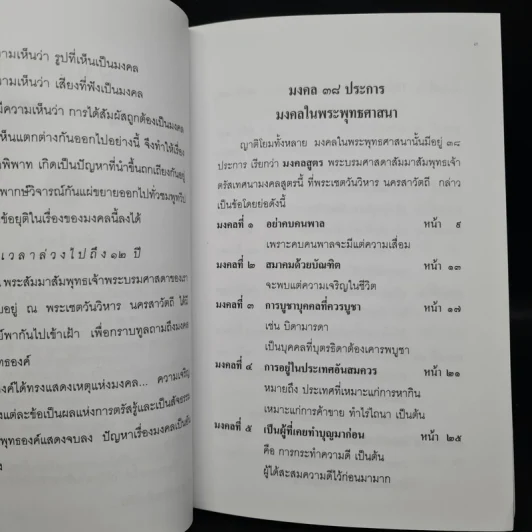 วามเห็นว่า รูปที่เห็นเป็นมงคล
ความเห็นว่า เสียงที่ฟังเป็นมงคล
มีความเห็นว่า การได้สัมผัสถูกต้องเป็นมงคล
เห็นแตกต่างกันออกไปอย่างนี้ จึงทำให้เรื่อง
พิพาท เกิดเป็นปัญหาที่นำขึ้นถกเถียงกันอยู่
พากษ์วิจารณ์กันแผ่ขยายออกไปทั่วชมพูทวีป
ข้อยุติในเรื่องของมงคลนี้ลงได้
เวลาล่วงไปถึง ๑๒ ปี
พระสัมมาสัมพุทธเจ้าพระบรมศาสดาของเรา
อยู่ ณ พระเชตวันวิหาร นครสาวัตถี ได้มี
พากันไปเข้าเฝ้า เพื่อกราบทูลถามถึงมงคล
ทธองค์
งค์ได้ทรงแสดงเหตุแห่งมงคล... ความเจริญ
แต่ละข้อเป็นผลแห่งการตรัสรู้และเป็นสัจธรรม
พุทธองค์แสดงจบลง ปัญหาเรื่องมงคลเป็นอัน
มงคล ๓๘ ประการ
มงคลในพระพุทธศาสนา
ญาติโยมทั้งหลาย มงคลในพระพุทธศาสนานั้นมีอยู่ ๓๘
ประการ เรียกว่า มงคลสูตร พระบรมศาสดาสัมมาสัมพุทธเจ้า
ตรัสเทศนามงคลสูตรนี้ ที่พระเชตวันวิหาร นครสาวัตถี กล่าว
เป็นข้อโดยย่อดังนี้
มงคลที่ ๑ อย่าคบคนพาล หน้า ๙
เพราะคบคนพาลจะมีแต่ความเสื่อม
มงคลที่ ๒ สมาคมด้วยบัณฑิต หน้า ๑๓
จะพบแต่ความเจริญในชีวิต
มงคลที่ ๓ การบูชาบุคคลที่ควรบูชา หน้า ๑๗
เช่น บิดามารดา
เป็นบุคคลที่บุตรธิดาต้องเคารพบูชา
มงคลที่ ๔ การอยู่ในประเทศอันสมควร หน้า ๒๑
หมายถึง ประเทศที่เหมาะแก่การหากิน
เหมาะแก่การค้าขาย ทำไร่ไถนา เป็นต้น
มงคลที่ ๕ เป็นผู้ที่เคยทำบุญมาก่อน หน้า ๒๕
คือ การกระทำความดี เป็นต้น
ผู้ได้สะสมความดีไว้ก่อนมามาก